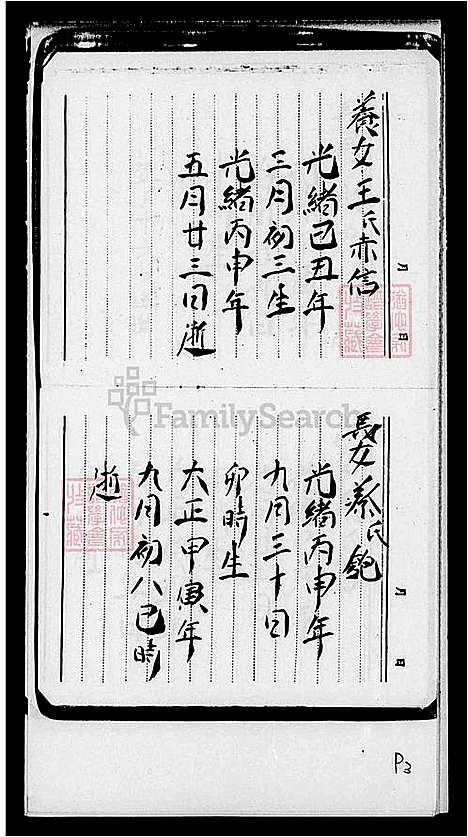 養女王氏赤信
光緒己丑年
三月初三生
光緒丙申年
五月廿三日逝
月 日
FamilySearch
長女蔡氏鉋
光緒丙申年
九月三十日
卯時生
大正甲寅年
九月初八巳時
逝
月 日
P3